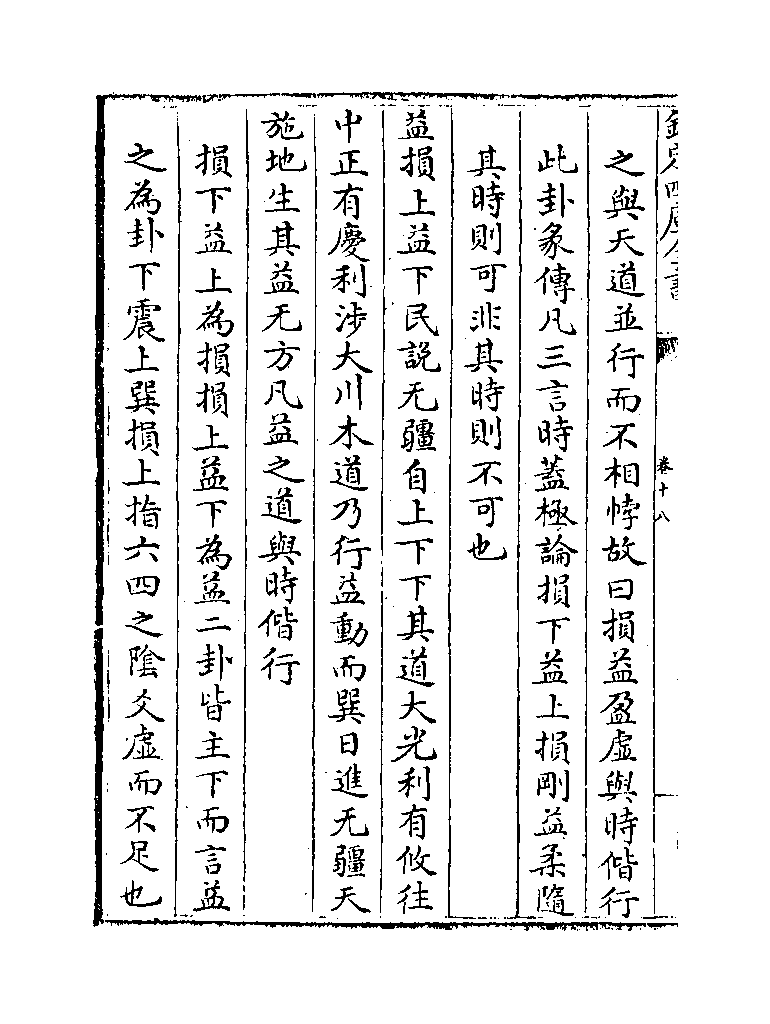 欽定四庫全書
卷十八
之與天道並行而不相悖故曰損益盈虛與時偕行
此卦彖傳凡三言時蓋極論損下益上損剛益柔隨
其時則可非其時則不可也
益損上益下民說无疆自上下下其道大光利有攸往
中正有慶利涉大川木道乃行益動而巽日進无疆天
施地生其益无方凡益之道與時偕行
損下益上為損損上益下為益二卦皆主下而言益
之為卦下震上巽損上指六四之陰爻虛而不足也